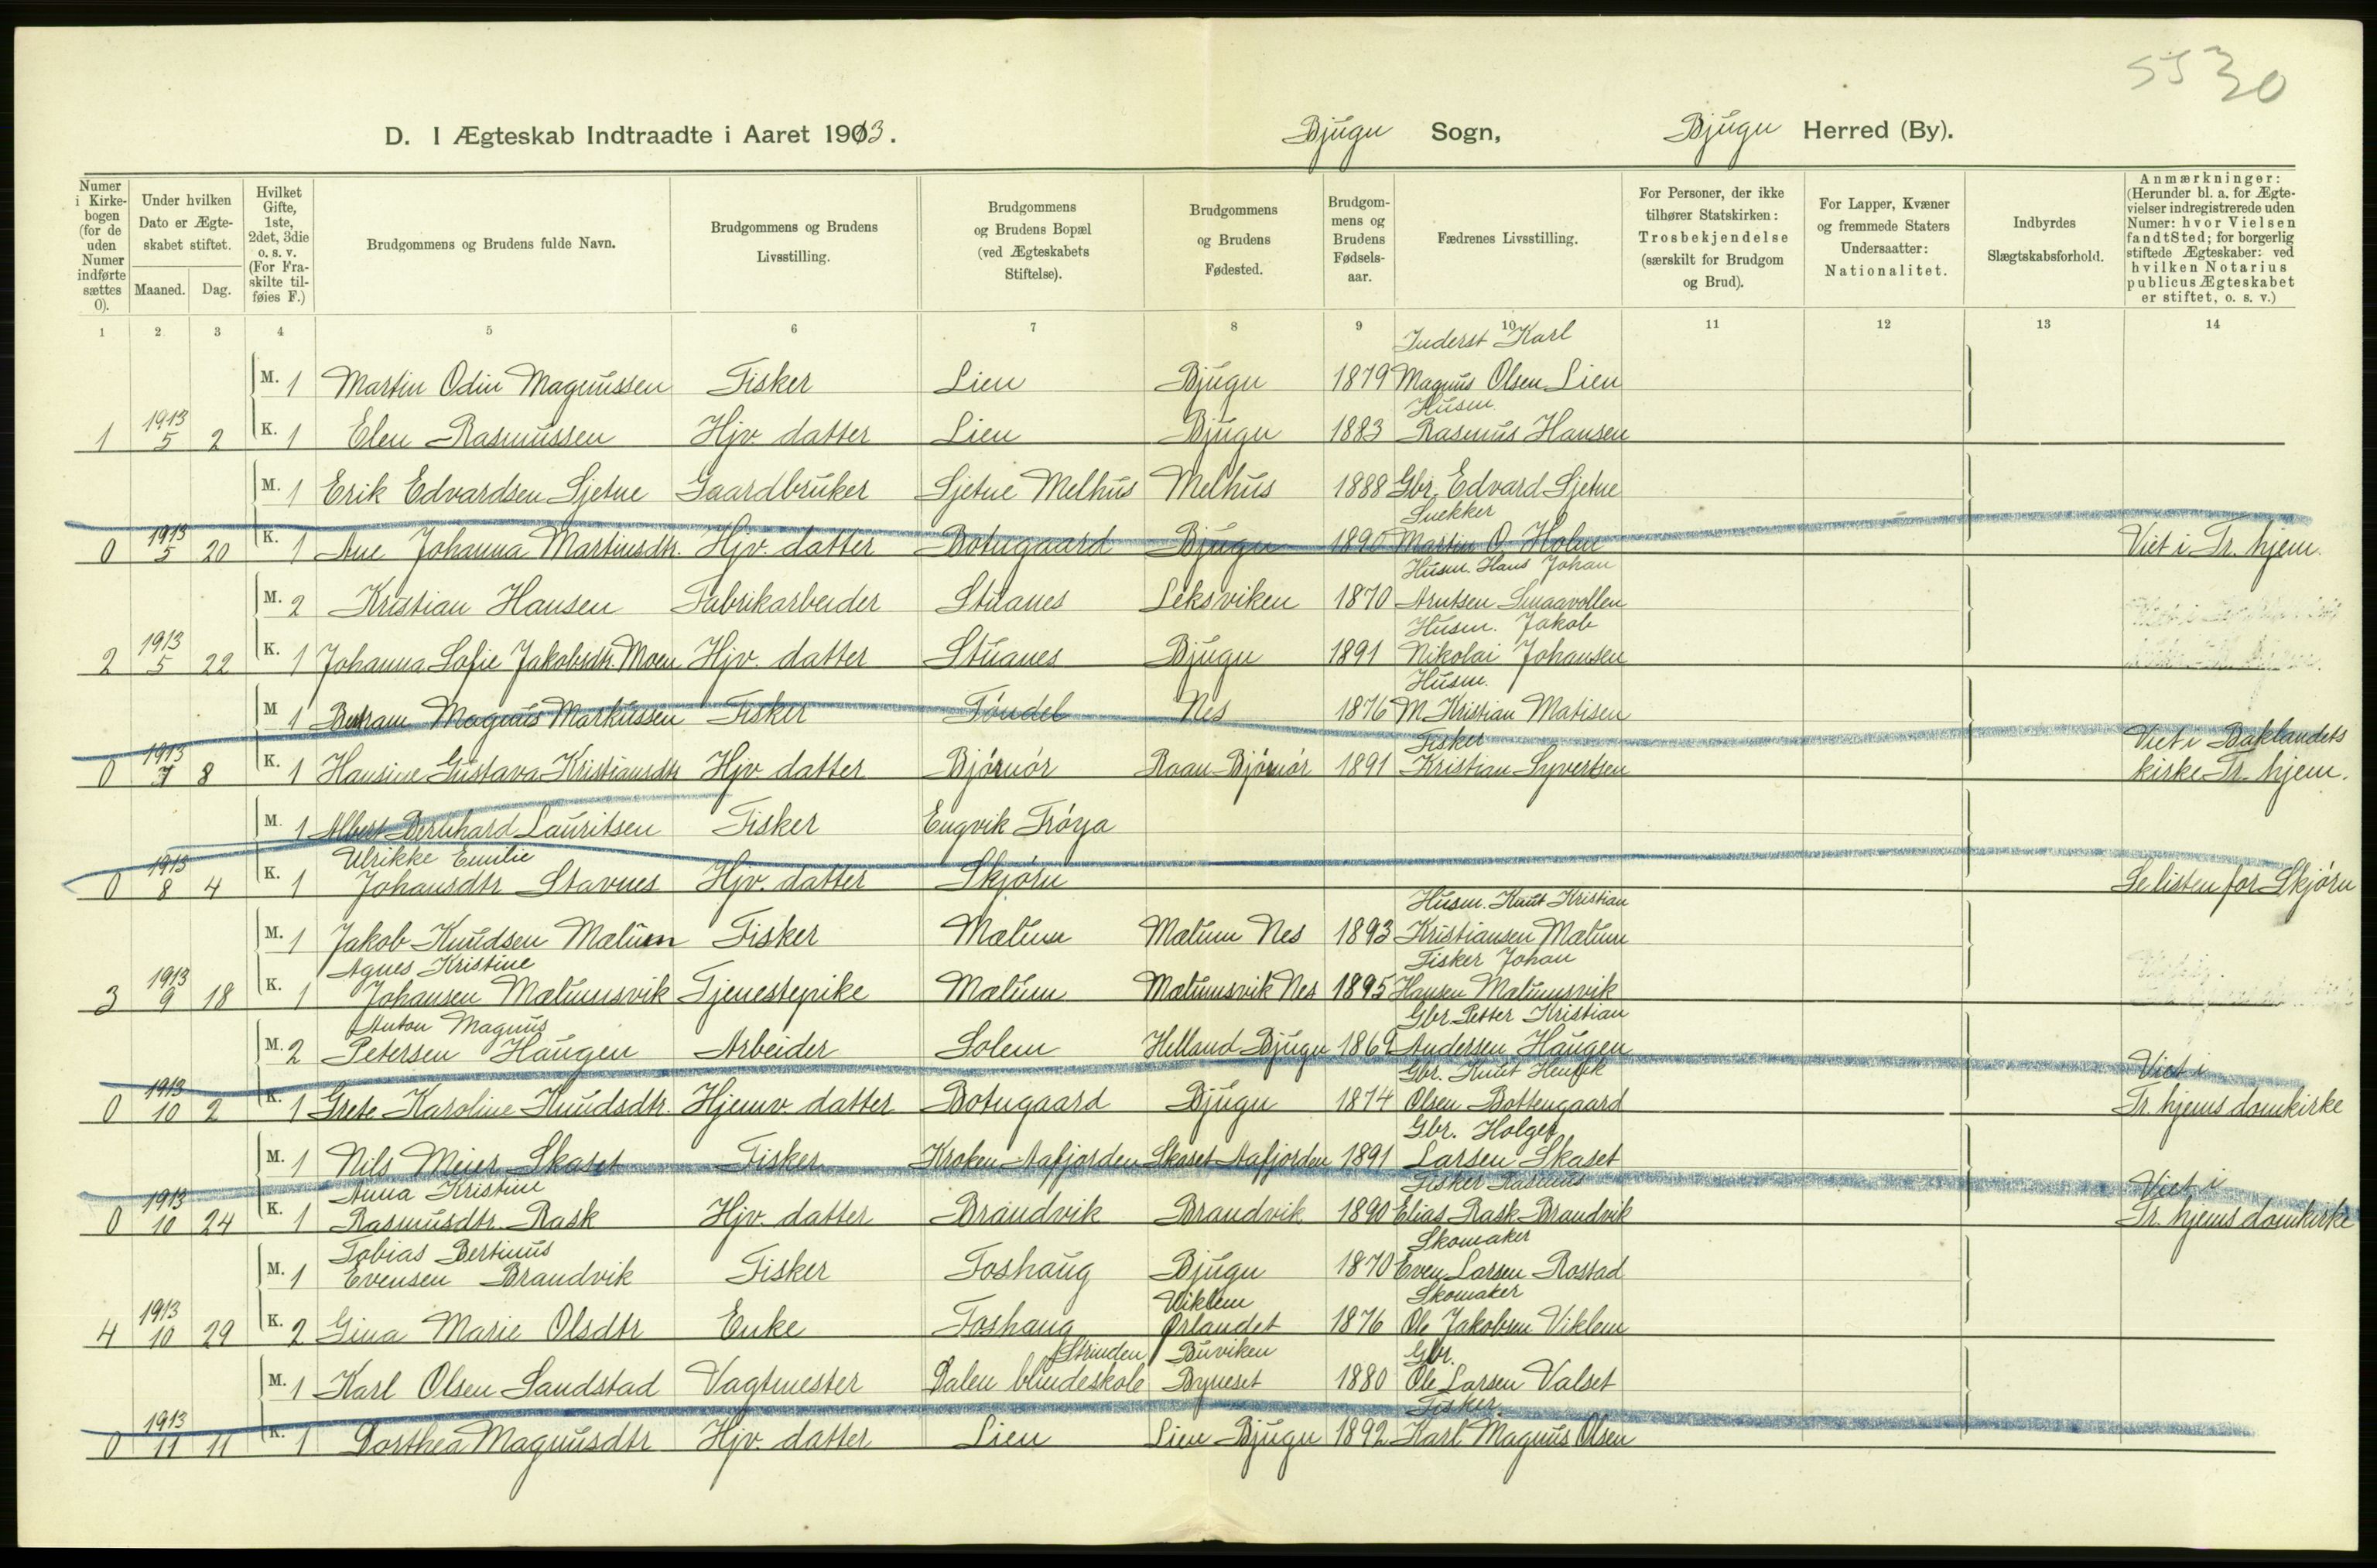 5530
D. I Ægteskab Indtraadte i Aaret 1913. Bjugn Sogn, Bjugn Herred (By).
Numer i Kirkebogen (for de uden Numer indførte sættes 0).
Under hvilken Dato er Ægteskabet stiftet.
Maaned. Dag.
Hvilket Gifte, 1ste, 2det, 3die o. s. v. (For Fraskilte tilføies F.)
Brudgommens og Brudens fulde Navn.
Brudgommens og Brudens Livsstilling.
Brudgommens og Brudens Bopæl (ved Ægteskabets Stiftelse).
Brudgommens og Brudens Fødested.
Brudgommens og Brudens Fødselsaar.
Fædrenes Livsstilling.
For Personer, der ikke tilhører Statskirken: Trosbekjendelse (særskilt for Brudgom og Brud).
For Lapper, Kvæner og fremmede Staters Undersaatter: Nationalitet.
Indbyrdes Slægtskabsforhold.
Anmærkninger: (Herunder bl. a. for Ægtevielser indregistrerede uden Numer: hvor Vielsen fandt Sted; for borgerlig stiftede Ægteskaber: ved hvilken Notarius publicus Ægteskabet er stiftet, o. s. v.)
1 2 3 4 5 6 7 8 9 10 11 12 13 14
Inderst Karl
M. 1 Martin Odin Magnussen Fisker Lien Bjugn 1879 Magnus Olsen Lien
Husm.
1 1913 5 2 K. 1 Elen Rasmussen Hjv. datter Lien Bjugn 1883 Rasmus Hansen
M. 1 Erik Edvardsen Ljetne Gaardbruker Ljetne Melhus Melhus 1888 Gbr. Edvard Ljetne
Snekker
0 1913 5 20 K. 1 Ane Johanna Martinsdtr. Hjv. datter Botngaard Bjugn 1890 Martin O. Holm Viet i Tr.hjem.
Husm. Hans Johan
M. 2 Kristian Hansen Fabrikarbeider Stuanes Leksviken 1870 Arntsen Smaavollen
Husm. Jakob
2 1913 5 22 K. 1 Johanna Sofie Jakobsdtr. Moen Hjv. datter Stuanes Bjugn 1891 Nikolai Johansen
Husm.
M 1 Magnus Markussen Fisker Tøndel Nes 1876 M. Kristian Matisen
Fisker Viet i Baklandets
0 1913 7 8 K. 1 Hansine Gustava Kristiansdtr Hjv. datter Bjørnør Raan Bjørnør 1891 Kristian Syvertsen kirke Tr.hjem.
M. 1 Albert Bernhard Lauritsen Fisker Engvik Frøya
Ulrikke Emilie
0 1913 8 4 K. 1 Johansdtr Stavnes Hjv. datter Skjørn Se listen for Skjørn
Husm. Knut Kristian
M. 1 Jakob Knudsen Mælum Fisker Mælum Mælum Nes 1893 Kristiansen Mælum
Agnes Kristine Fisker Johan
3 1913 9 18 K. 1 Johansen Mælumsvik Tjenestepike Mælum Mælumsvik Nes 1895 Hansen Mælumsvik
Anton Magnus Gbr. Petter Kristian
M. 2 Petersen Haugen Arbeider Solem Helland Bjugn 1869 Andersen Haugen
Gbr. Knut Henrik Viet i
0 1913 10 2 K. 1 Grete Karoline Knudsdtr. Hjemv. datter Botngaard Bjugn 1874 Olsen Bottengaard Tr.hjems domkirke
Gbr. Holger
M. 1 Nils Meier Skaset Fisker Kroken Aafjorden Skaset Aafjorden 1891 Larsen Skaset
Anna Kristine Fisker Rasmus Viet i
0 1913 10 24 K. 1 Rasmusdtr. Rask Hjv. datter Brandvik Brandvik 1890 Elias Rask Brandvik Tr.hjems domkirke
Tobias Bertinus Skomaker
M. 1 Evensen Brandvik Fisker Foshaug Bjugn 1870 Even Larsen Rostad
Viklem Skomaker
4 1913 10 29 K. 2 Gina Marie Olsdtr Enke Foshaug Ørlandet 1876 Ole Jakobsen Viklem
Strinden Buviken Gbr.
M. 1 Karl Olsen Sandstad Vagtmester Dalen blindeskole Byneset 1880 Ole Larsen Valset
Fisker
0 1913 11 11 K. 1 Dorthea Magnusdtr Hjv. datter Lien Lien Bjugn 1892 Karl Magnus Olsen